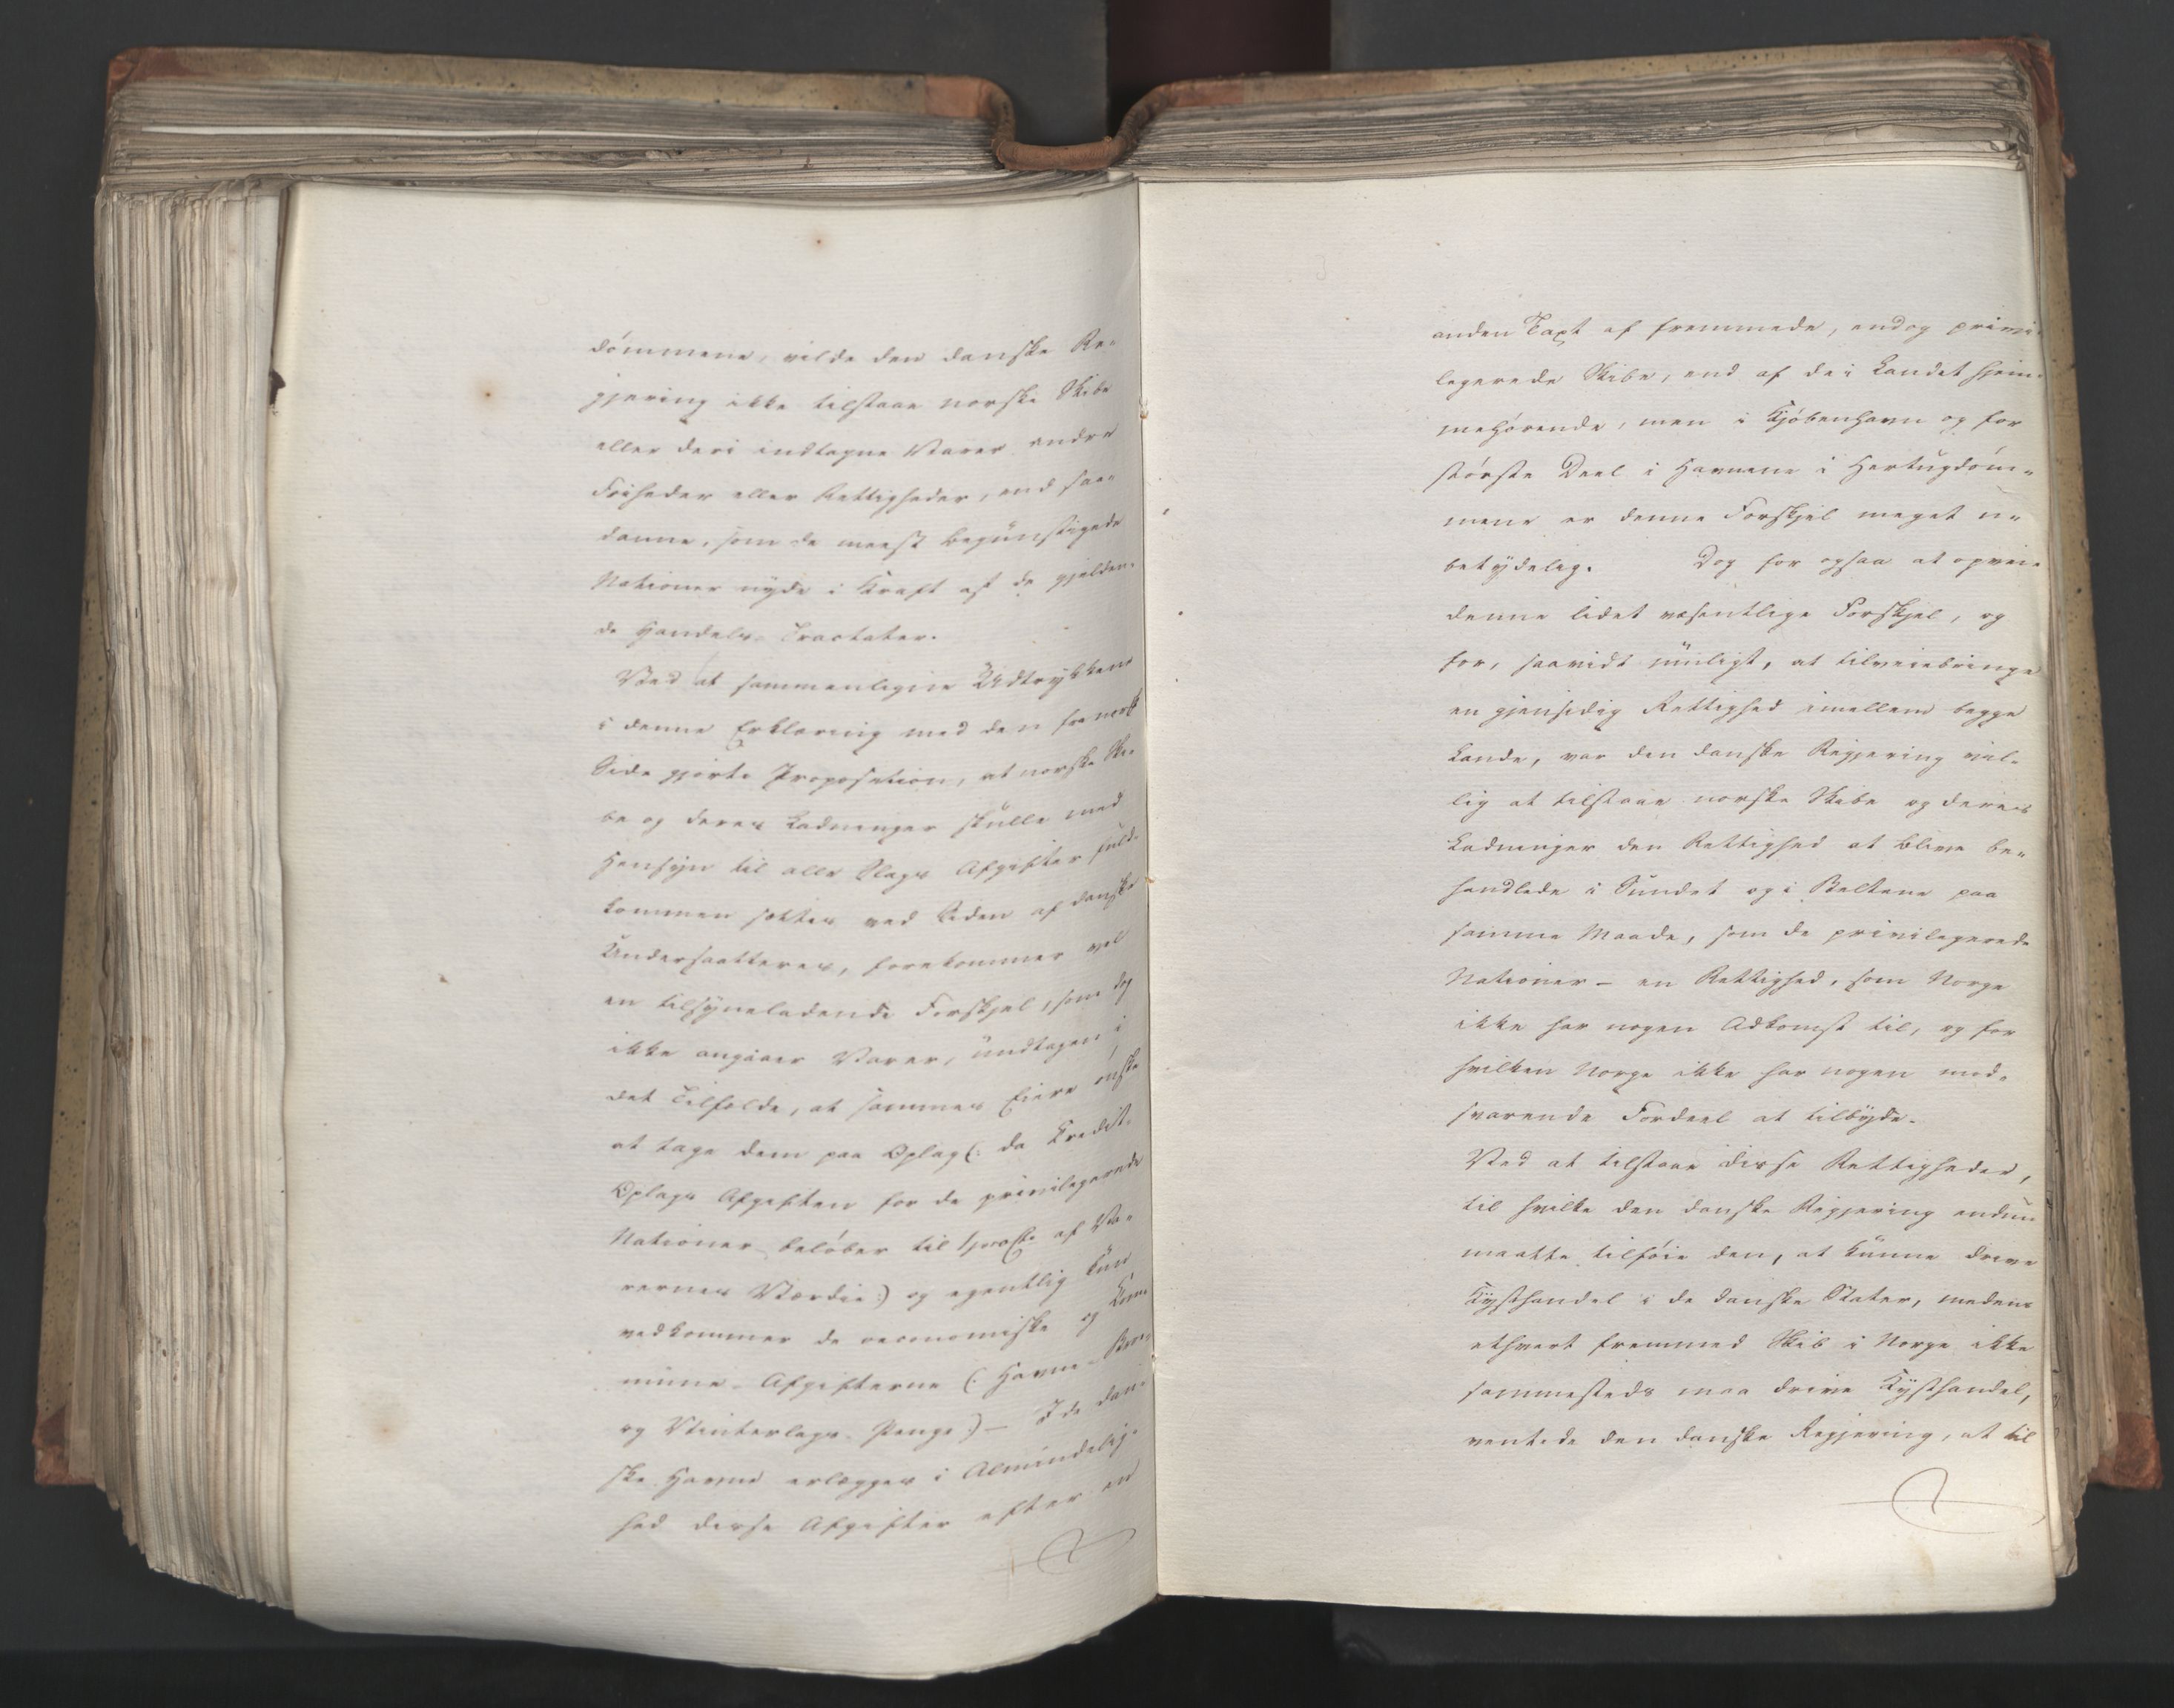 dömmene, vilde den danske Re-
gjering ikke tilstaae norske Skibe
eller deri indtagne Varer andre
Friheder eller Rettigheder, end saa-
danne, som de meest begünstigede
Nationer nyde i Kraft af de gjelden-
de Handels-Tractater.
Ved at sammenligne Udtrykkene
i denne Erklæring med den fra norsk
Side gjorte Proposition, at norske Ski-
be og deres Ladninger skulle med
Hensyn til alle Slags Afgifter fuld-
kommen sættes ved Siden af danske
Undersaatteres, forekommer vel
en tilsyneladende Forskjel, som dog
ikke angaaer Varer, undtagen i
det Tilfælde, at sammes Eiere ønske
at tage dem paa Oplag (: da Kredit-
Oplags Afgiften for de privilegerede
Nationer beløber til 1 procto af Va-
rernes Værdie :) og egentlig kun
vedkommer de oeconomiske og Com-
mune-Afgifterne (: Havne-
og Vinterlags-Penge :) - I de dan-
ske Havne erlægges i Almindelig-
hed disse Afgifter efter en
anden Taxt af fremmede, endog privi-
legerede Skibe, end af de i Landet hjem-
mehørende, men i Kjöbenhavn og for
störste Deel i Havnene i Hertugdöm-
mene er denne Forskjel meget u-
betydelig. Dog for ogsaa at opveie
denne lidet væsentlige Forskjel, og
for, saavidt muligt, at tilveiebringe
en gjensidig Rettighed imellem begge
Lande, var den danske Regjering vil-
lig at tilstaae norske Skibe og deres
Ladninger den Rettighed at blive be-
handlede i Sundet og i Belterne paa
samme Maade, som de privilegerede
Nationer - en Rettighed, som Norge
ikke har nogen Adkomst til, og for
hvilken Norge ikke har nogen mod-
svarende Fordeel at tilbyde.
Ved at tilstaae disse Rettigheder,
til hvilke den danske Regjering endnu
maatte tilföie den, at kunne drive
Kysthandel i de danske Stater, medens
ethvert fremmed Skib i Norge ikke
sammesteds maa drive Kysthandel,
ventede den danske Regjering, at til